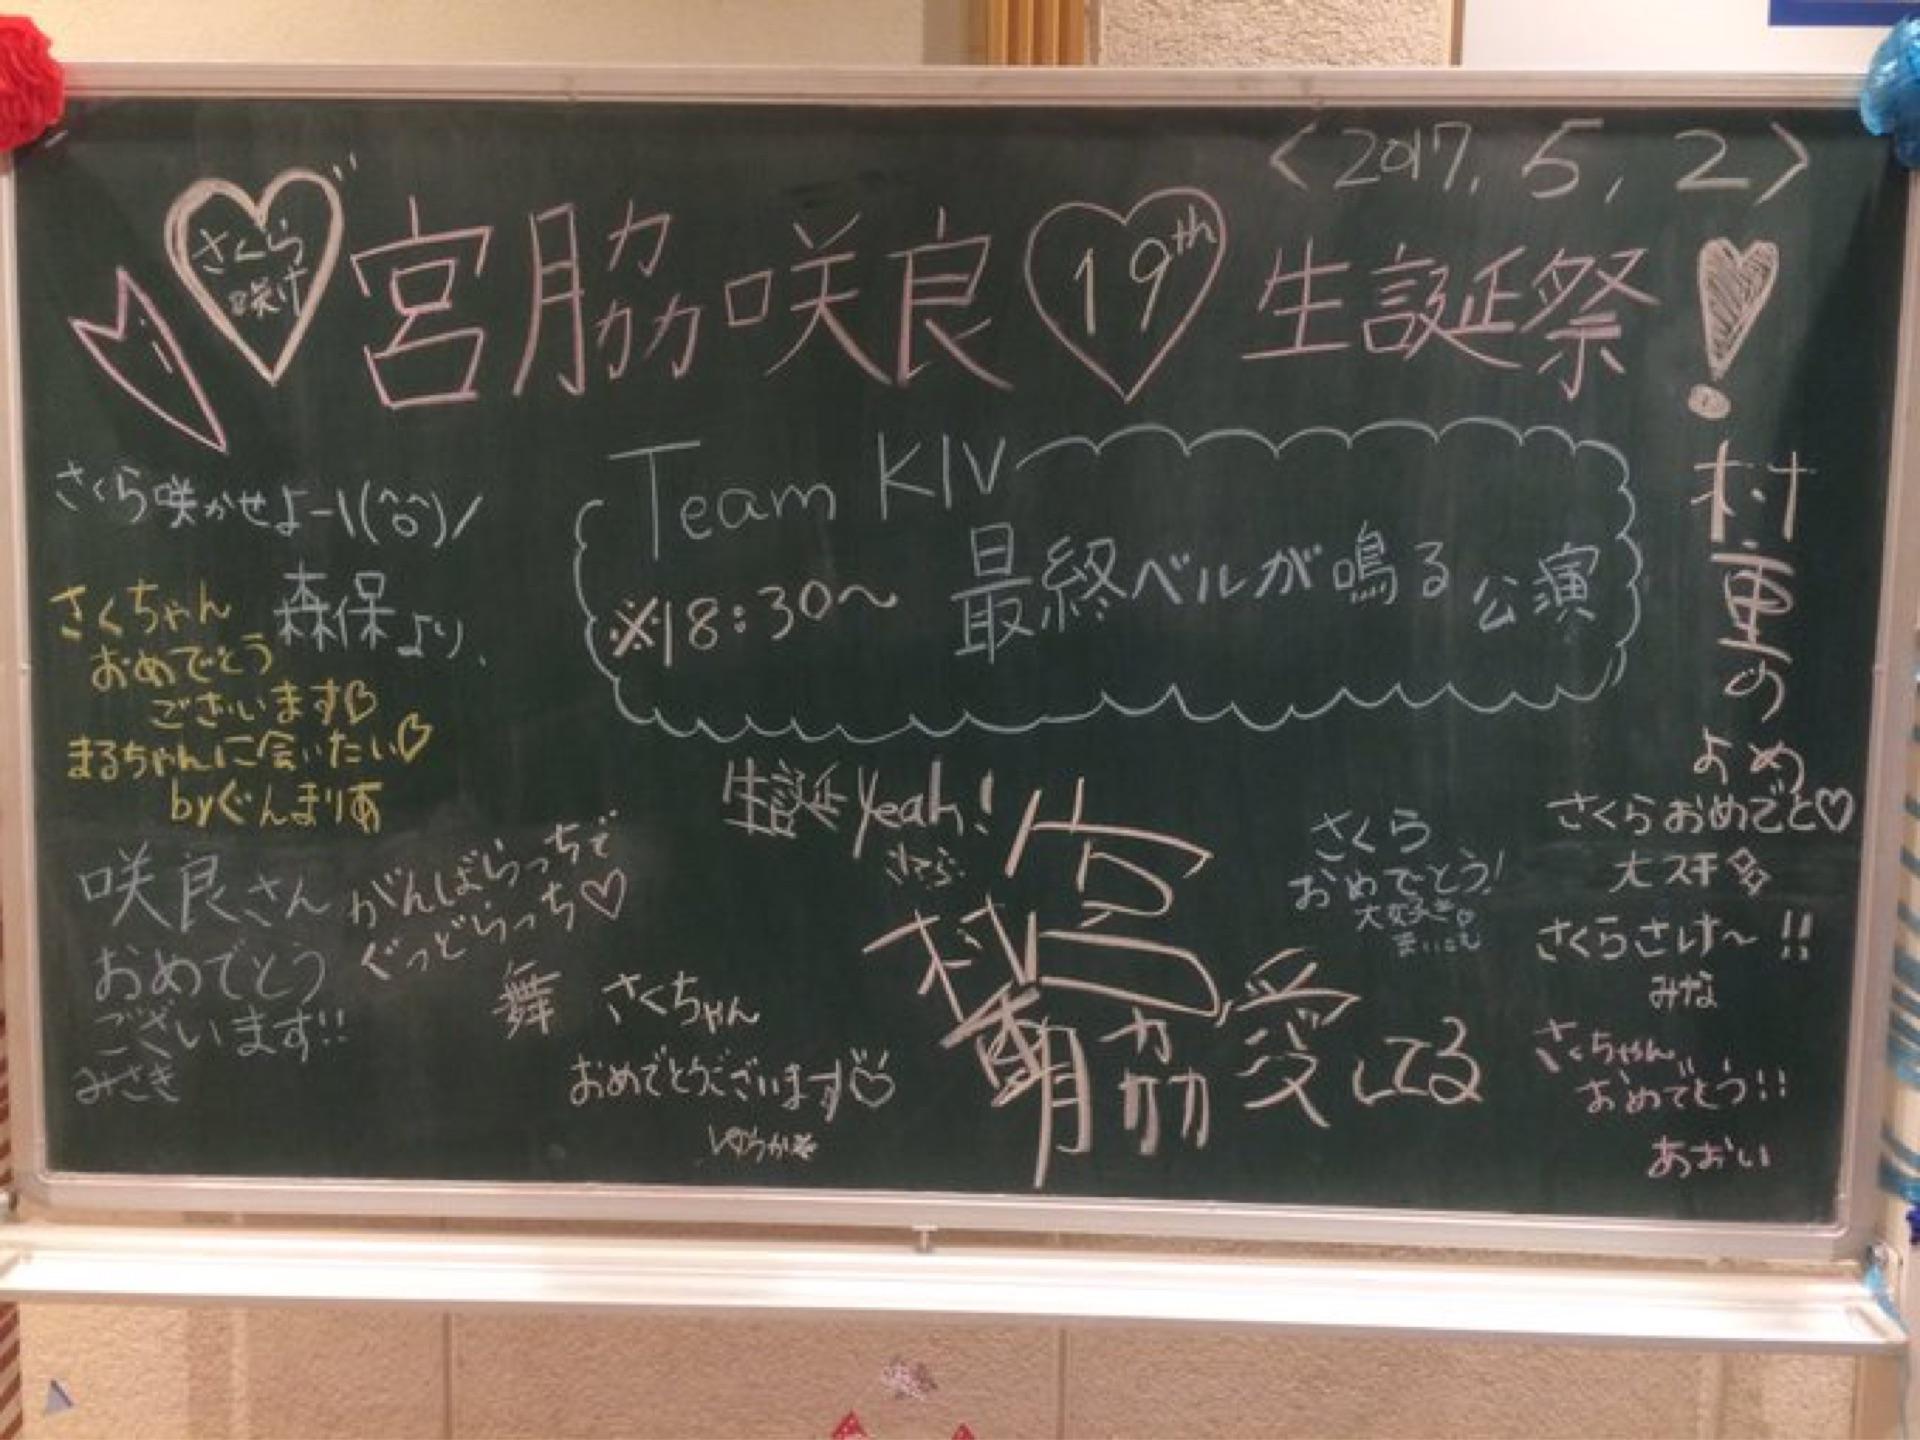 <2017.5.2>
さくら
咲け
宮脇咲良 19th 生誕祭
Team KIV
※18:30〜 最終ベルが鳴る公演
さくら咲かせよー\(^o^)/
森保より、
さくちゃん
おめでとう
ございます♡
まるちゃんに会いたい♡
byぐんまりあ
咲良さん
おめでとう
ございます!!
みさき
がんばらっちで
ぐっどらっち♡
舞
さくちゃん
おめでとうございます♡
生誕Yeah!
宮脇
愛してる
さくら
おめでとう!
大好き
村重の
よめ
さくらおめでと♡
大スキ
さくらさけ〜!!
みな
さくちゃん
おめでとう!!
あおい